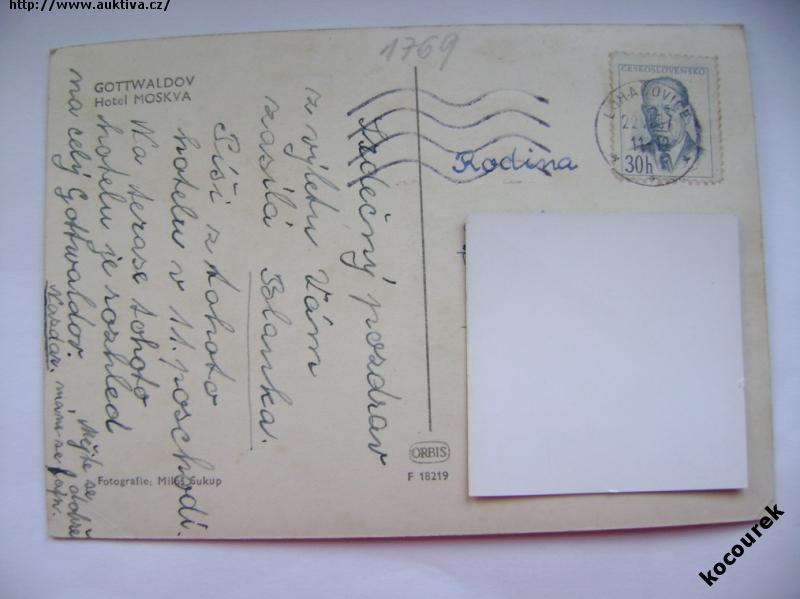 http://www.auktiva.cz/
1769
GOTTWALDOV
Hotel MOSKVA
Srdečný pozdrav
z výletu Vám
zasílá Blanka.
Píši z tohoto
hotelu v 11. poschodí.
Na terase tohoto
hotelu je rozhled
na celý Gottwaldov.
Nazdar. máme se fajn.
Mějte se
dobře
Fotografie: Miloš Sukup
ORBIS
F 18219
Rodina
ČESKOSLOVENSKO
30h
LUHAČOVICE
kocourek